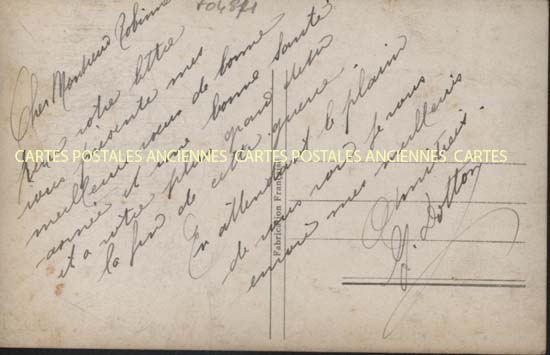 Cher Monsieur Robinne
reçu votre lettre
vous présente mes
meilleurs voeux de bonne
année et une bonne santé
et a votre plus grand désir
la fin de cette guerre.
En attendant le plaisir
de vous voir je vous
envoie mes meilleurs
Amitiés.
Dotton
CARTES POSTALES ANCIENNES CARTES POSTALES ANCIENNES CARTES
Fabrication Française